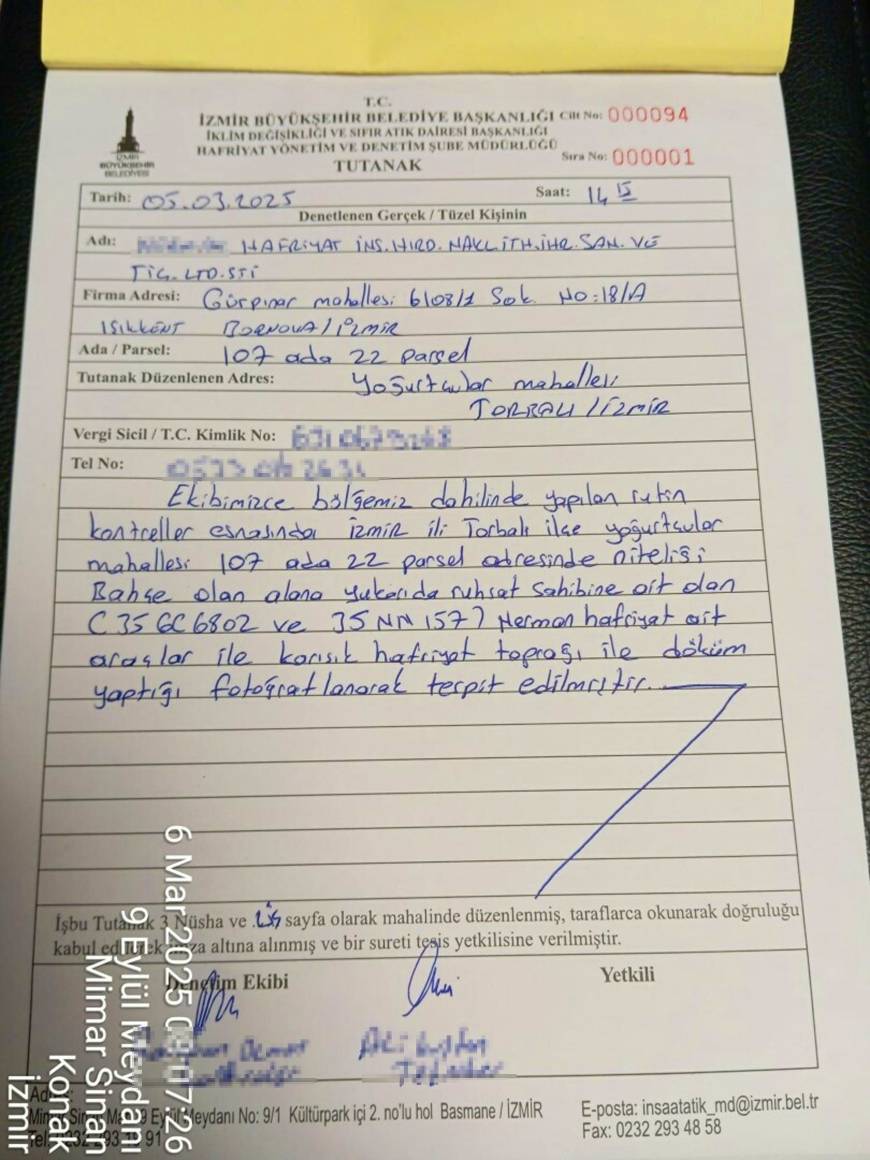 T.C.
İZMİR BÜYÜKŞEHİR BELEDİYE BAŞKANLIĞI Cilt No: 000094
İKLİM DEĞİŞİKLİĞİ VE SIFIR ATIK DAİRESİ BAŞKANLIĞI
HAFRİYAT YÖNETİM VE DENETİM ŞUBE MÜDÜRLÜĞÜ
Sıra No: 000001
TUTANAK
İZMİR
BÜYÜKŞEHİR
BELEDİYESİ
Tarih: 05.03.2025 Saat: 14 15
Denetlenen Gerçek / Tüzel Kişinin
Adı: HAFRİYAT İNS. HIRD. NAKL İTH. İHR. SAN. VE
TİC. LTD. STİ
Firma Adresi: Gürpınar mahallesi 6103/1 Sok. NO: 18/A
IŞIKKENT BORNOVA / İZMİR
Ada / Parsel: 107 ada 22 parsel
Tutanak Düzenlenen Adres: Yoğurtcular mahallesi
TORBALI / İZMİR
Vergi Sicil / T.C. Kimlik No:
Tel No:
Ekibimizce bölgemiz dahilinde yapılan rutin
kontroller esnasında izmir ili Torbalı ilçe yoğurtcular
mahallesi 107 ada 22 parsel adresinde niteliği
Bahçe olan alana yukarıda ruhsat sahibine ait olan
C 35 GC 6802 ve 35 NN 1577 Nerman hafriyat ait
araçlar ile karışık hafriyat toprağı ile döküm
yaptığı fotoğraflanarak tespit edilmiştir.
İşbu Tutanak 3 Nüsha ve sayfa olarak mahalinde düzenlenmiş, taraflarca okunarak doğruluğu
kabul edilerek imza altına alınmış ve bir sureti tesis yetkilisine verilmiştir.
Denetim Ekibi Yetkili
Adres:
Mimar Sinan Mah. 9 Eylül Meydanı No: 9/1 Kültürpark içi 2. no'lu hol Basmane / İZMİR
E-posta: insaatatik_md@izmir.bel.tr
Tel: 0232 293 91
Fax: 0232 293 48 58
6 Mar 2025 09:07:26
9 Eylül Meydanı
Mimar Sinan
Konak
İzmir